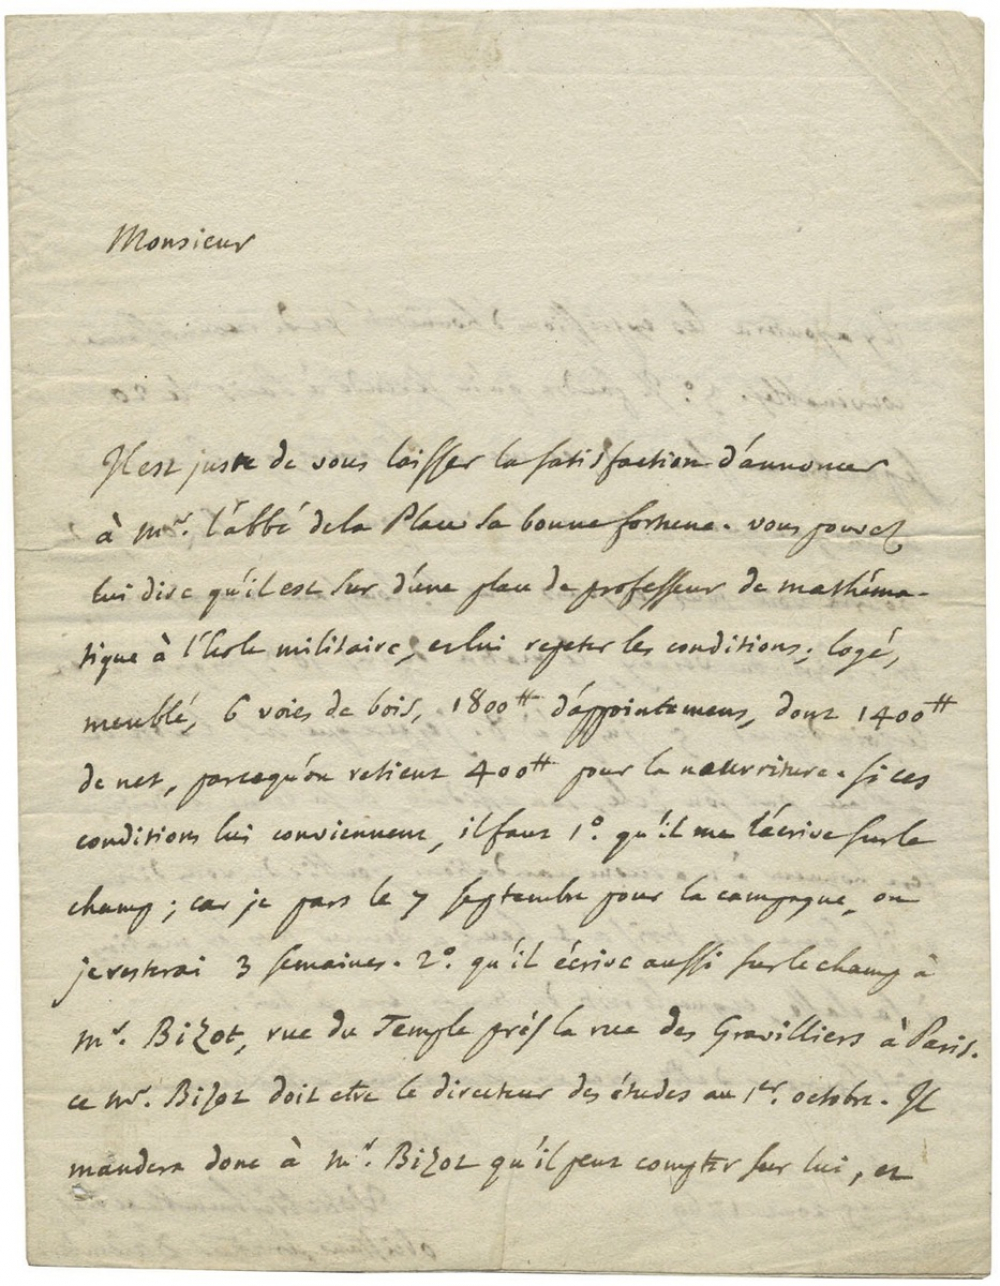 Monsieur
Il est juste de vous laisser la satisfaction d'annoncer
à mr. l'abbé de la Place sa bonne fortune. vous pouvez
lui dire qu'il est sur d'une place de professeur de mathéma-
tique à l'École militaire, et lui répéter les conditions; logé,
meublé, 6 voies de bois, 1800tt d'appointemens, dont 1400tt
de net, parcequ'on retient 400tt pour la nourriture. si ces
conditions lui conviennent, il faut 1o. qu'il me l'écrive sur le
champ; car je pars le 7 septembre pour la campagne, ou
je resterai 3 semaines. 2o. qu'il écrive aussi sur le champ à
mr. Bizot, rue du Temple prés la rue des Gravilliers à Paris.
ce mr. Bizot doit etre le directeur des études au 1er. octobre. Il
mandera donc à mr. Bizot qu'il peut compter sur lui, et